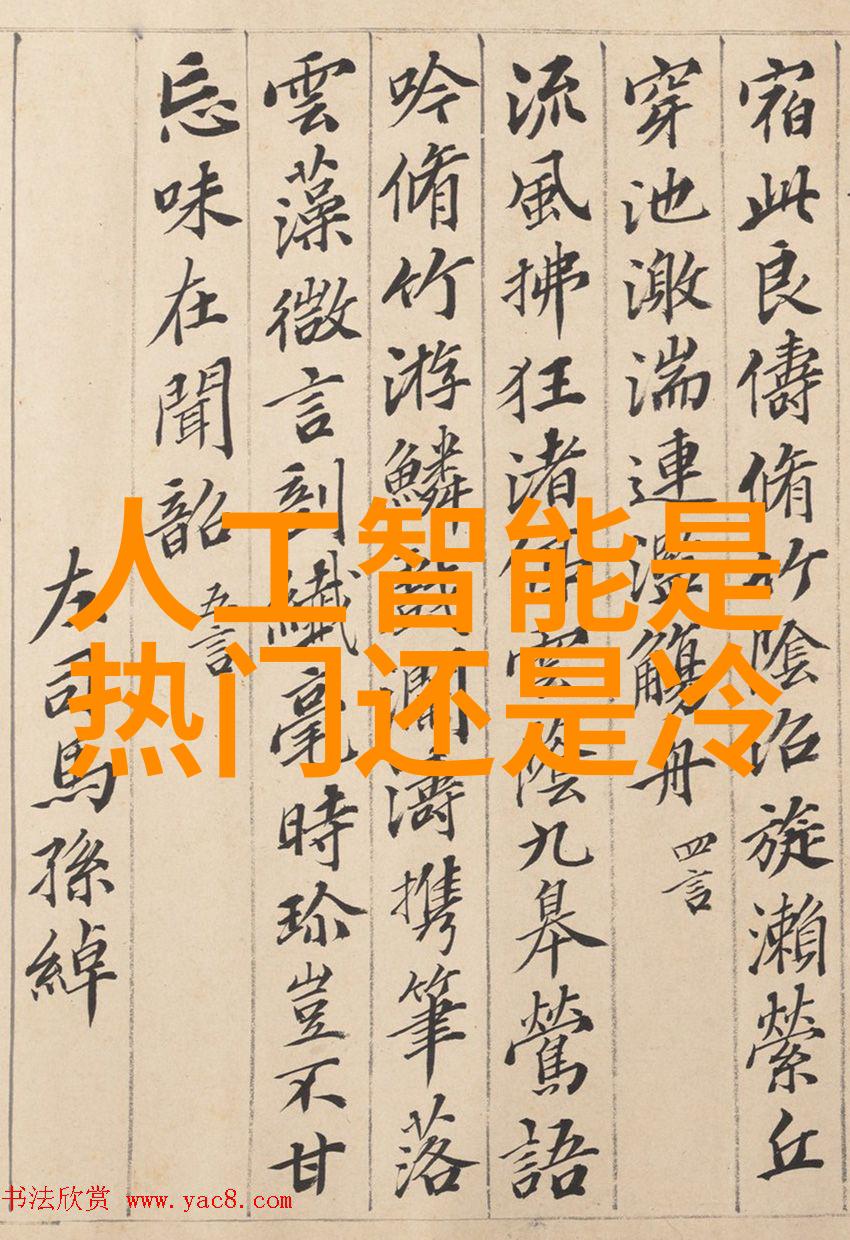 宿此良儔脩竹陰沼旋瀨縈丘
穿池激湍連濫觴舟 四言
流風拂狂渚停雲陰九皋鶯語
吟脩竹游鱗戲瀾濤携筆落
雲藻微言剖纖毫時珎豈不甘
忘味在聞韶 五言
左司馬孫綽
人工智能是
热门还是冷
书法欣赏 www.yac8.com